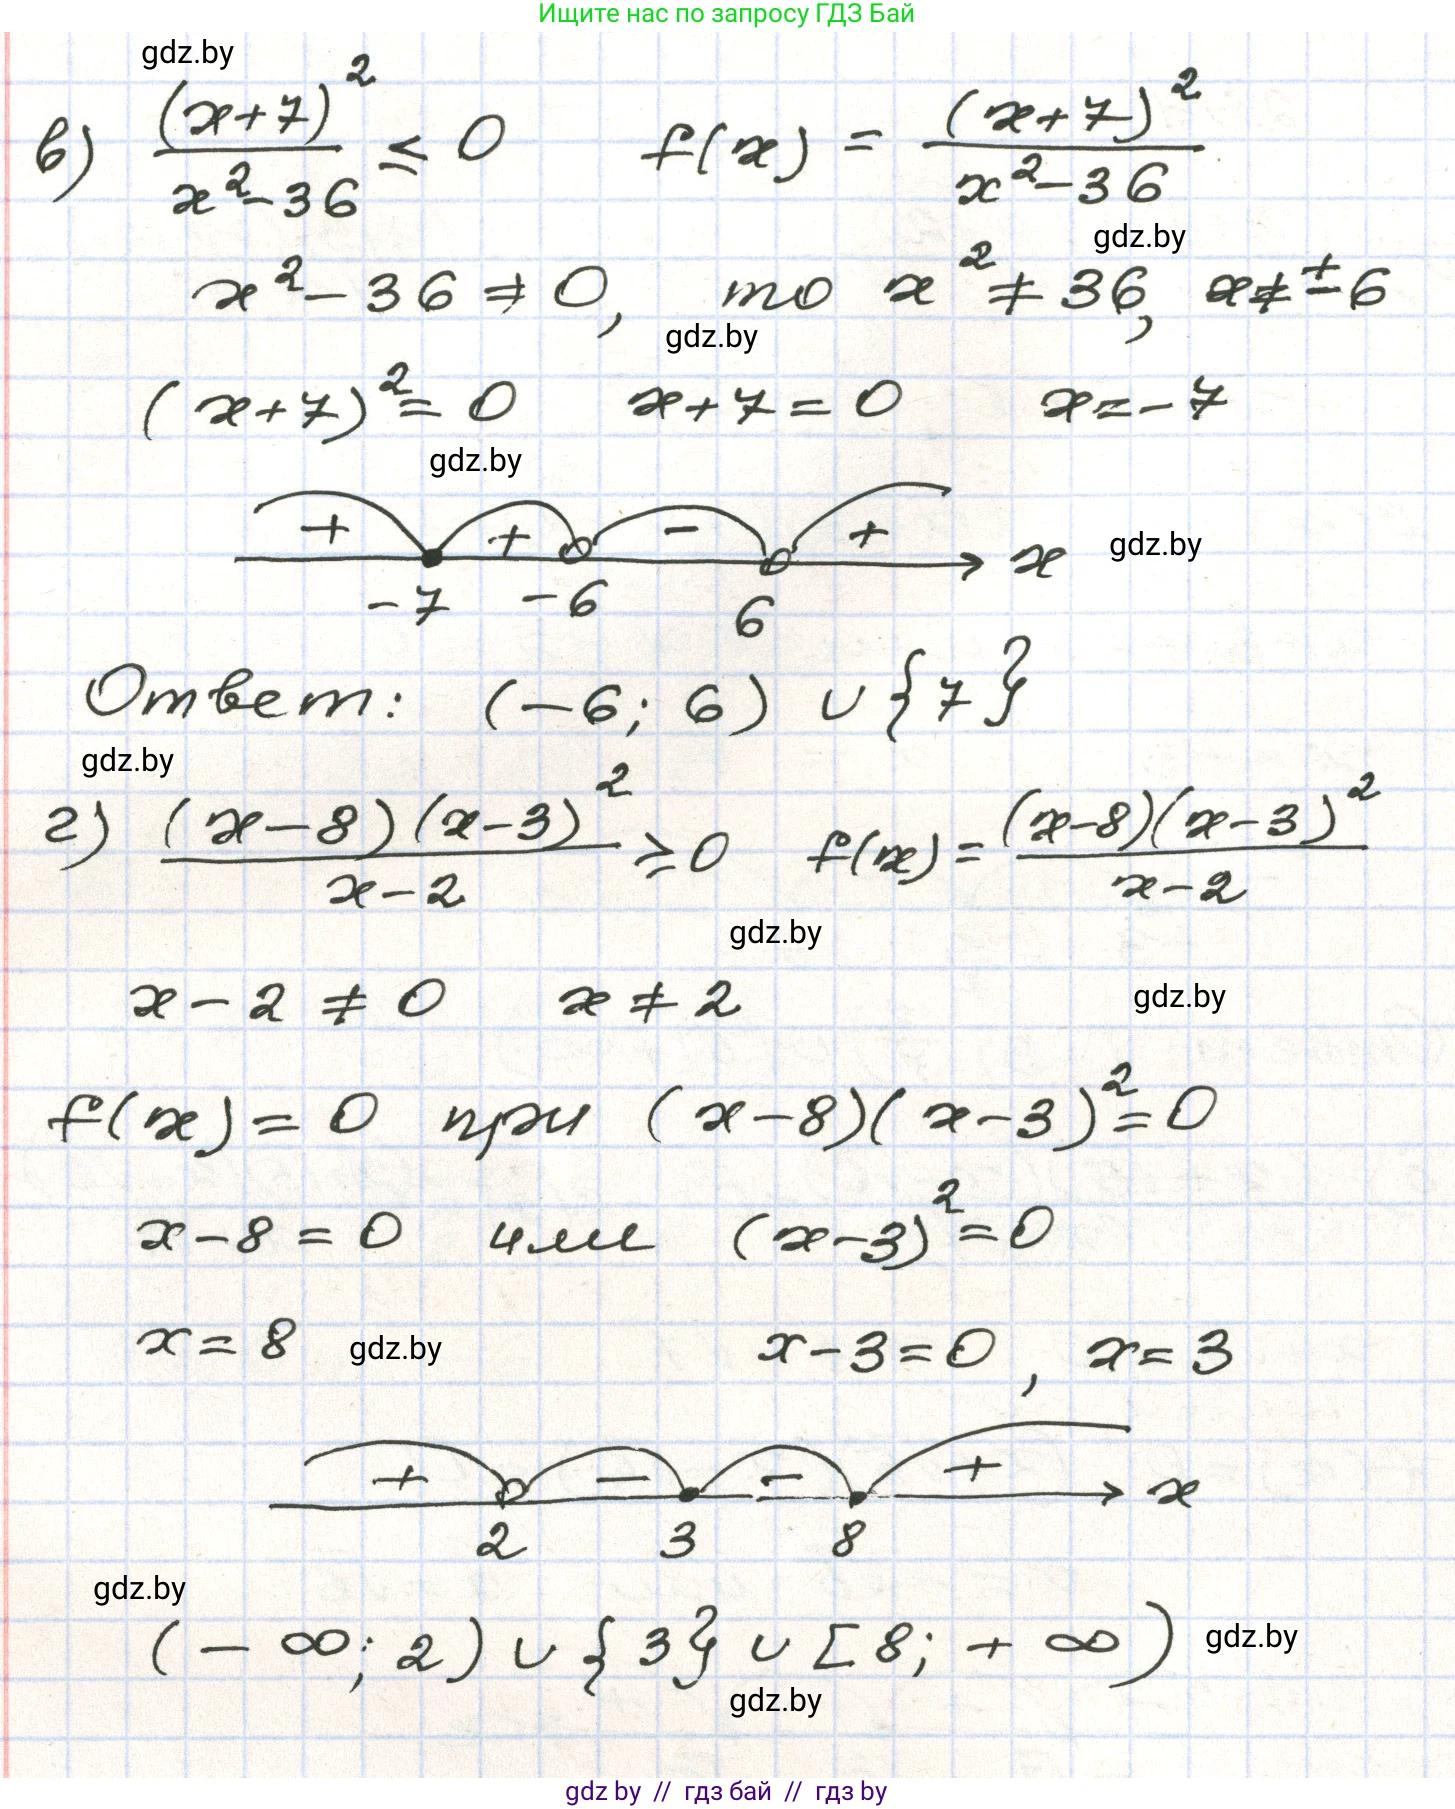 Ищите нас по запросу ГДЗ Бай
gdz.by
в) (x+7)²/(x²-36) ≤ 0 f(x) = (x+7)²/(x²-36)
gdz.by
x²-36≠0, то x²≠36, x≠±6
gdz.by
(x+7)²=0 x+7=0 x=-7
gdz.by
+ + - + x gdz.by
-7 -6 6
Ответ: (-6; 6) ∪ {7}
gdz.by
г) (x-8)(x-3)²/(x-2) ≥ 0 f(x) = (x-8)(x-3)²/(x-2)
gdz.by
x-2≠0 x≠2 gdz.by
f(x)=0 при (x-8)(x-3)²=0
x-8=0 или (x-3)²=0
x=8 gdz.by x-3=0, x=3
+ - - + x
2 3 8
gdz.by
(-∞; 2) ∪ {3} ∪ [8; +∞) gdz.by
gdz.by
gdz by // гдз бай // гдз by